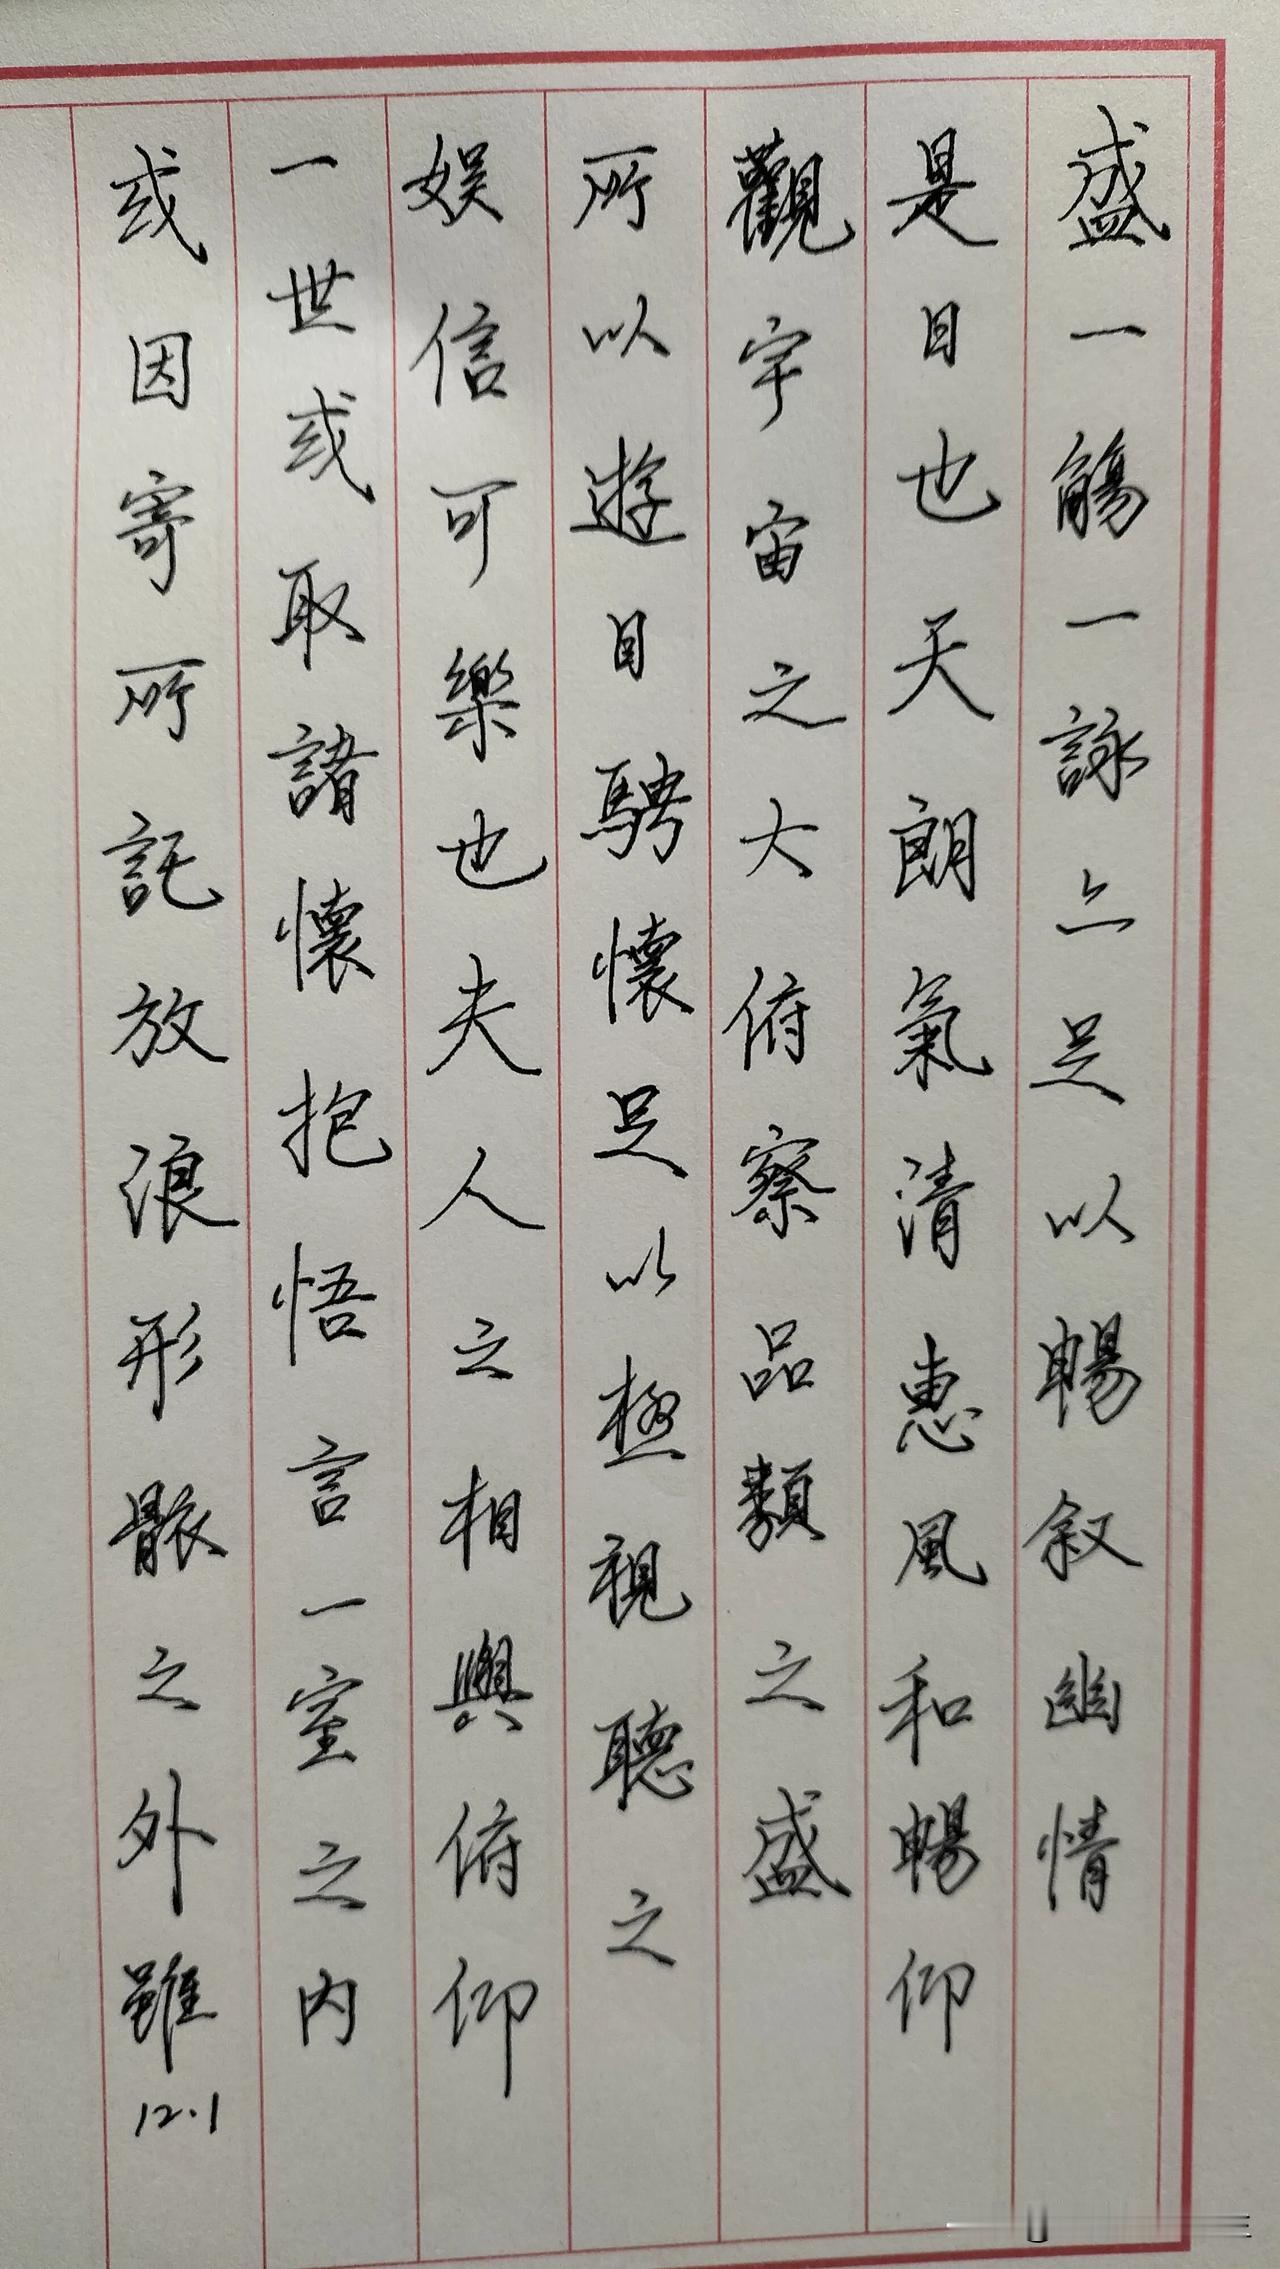 盛一觴一詠亦足以暢叙幽情
是日也天朗氣清惠風和暢仰
觀宇宙之大俯察品類之盛
所以遊目騁懷足以極視聽之
娱信可樂也夫人之相與俯仰
一世或取諸懷抱悟言一室之内
或因寄所託放浪形骸之外雖
12.1